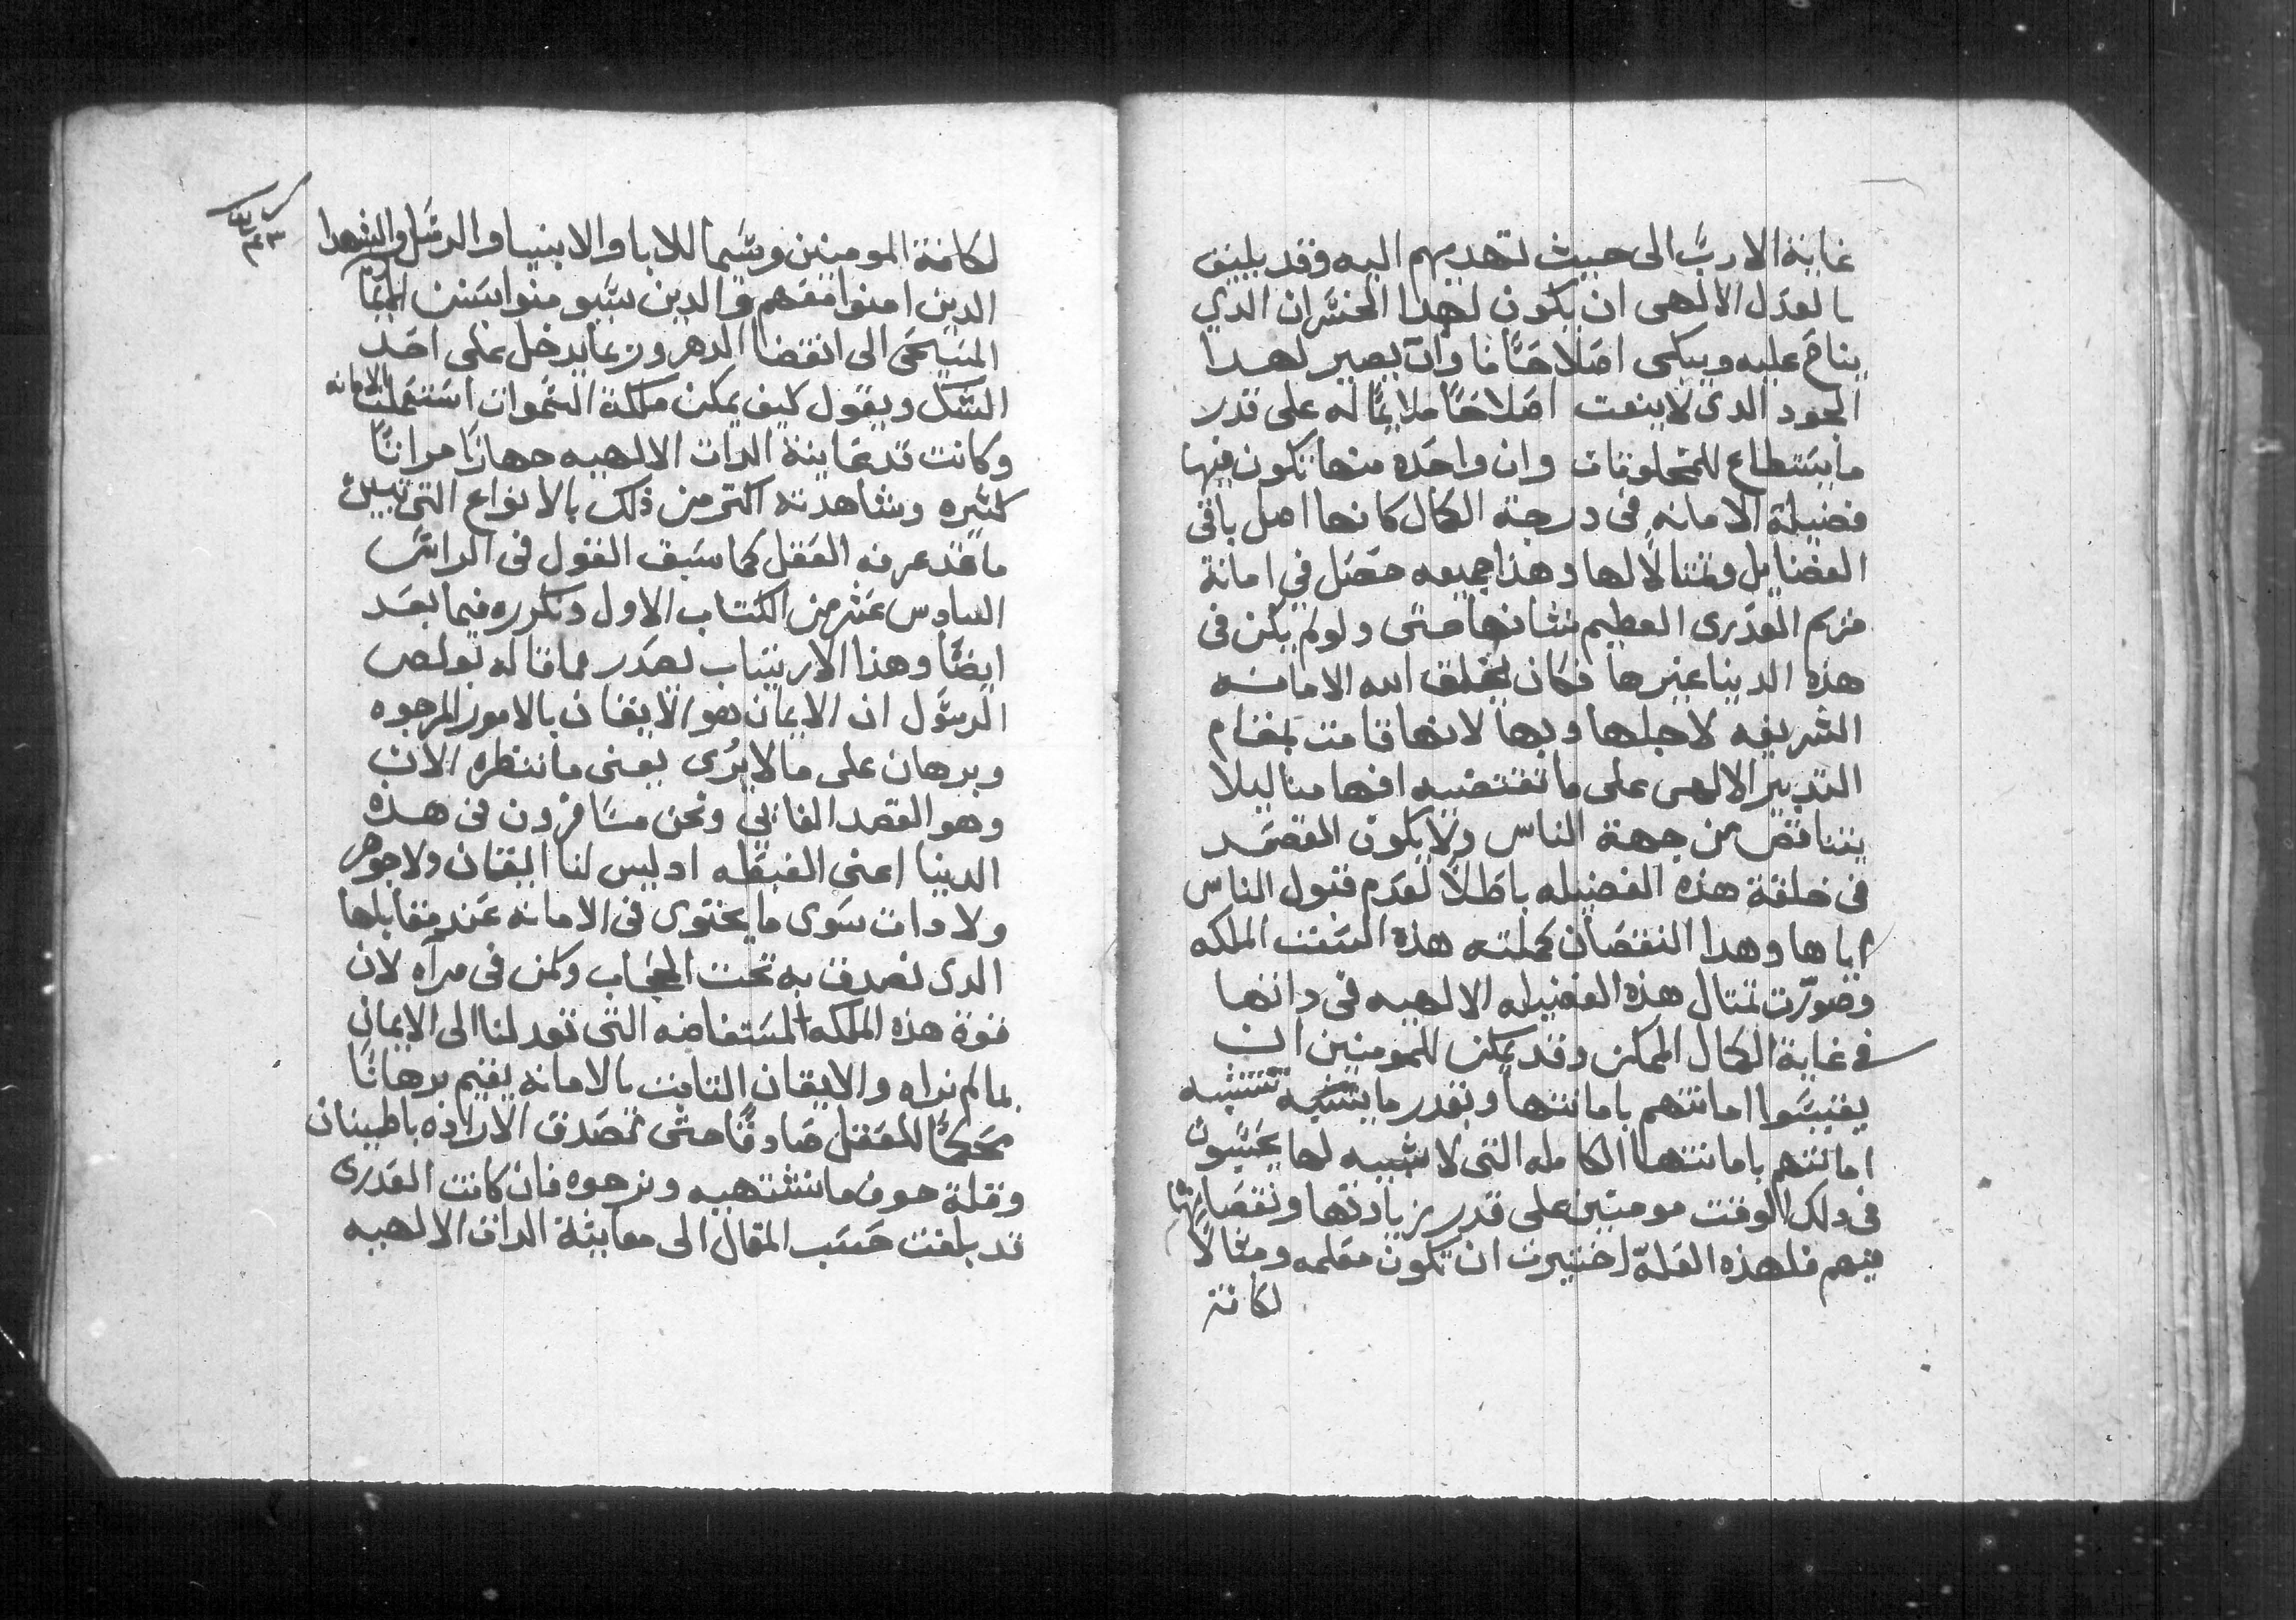 غاية الارب الى حيث تهديهم اليه وقد يليق
بالعدل الالهى ان يكون لهدا الخسران الدي
يناح عليه ويبكى اصلاحًا ما وان يصير لهدا
الجود الدى لا ينعت اصلاحًا ملايمًا له على قدر
ما يستطاع للمخلوقات وان واحده منها تكون فيها
فضيلة الامانه فى درجة الكمال كانها اصل باقى
الفضايل ومتنالا لها وهذا جميعه حصل في امانة
مريم العدرى العظيم شانها حتى ولو لم يكن فى
هذه الدنيا غيرها فكان يخلق الله الامانه
الشريفه لاجلها وبها لانها قامت بمقام
التدبير الالهى على ما تقتضيه افهامنا ليلا
يتناقض من جهة الناس ولا يكون المقصد
فى خلقة هذه الفضيله باطلًا لعدم قبول الناس
اياها وهدا النقصان كملته هذه السفت الملكه
وصورت تمتال هذه الفضيله الالهيه فى داتها
فى غاية الكمال الممكن وقد يمكن للمومنين ان
يقيسوا امانتهم بامانتها وبقدر ما تتشبه
امانتهم بامانتها الكامله التى لا شبيه لها يحسبون
فى دلك الوقت مومنين على قدر زيادتها ونقصانها
فيهم فلهذه العلة اختيرت ان تكون معلمه ومثالًا
لكافة
لكافة المومنين وسيما للابا والانبيا والرسل والشهدا
الدين امنوا معهم والدين سيومنوا بسنن الايمان
المسيحى الى انقضا الدهر وربما يدخل على احد
الشك ويقول كيف يمكن ملكة السموات استعملت الامانه
وكانت تدعاينة الدات الالهيه جهارًا مرارًا
كثيره وشاهدته اكتر من ذلك بالانواع التى تبين
ما قد عرفه العقل كما سبق القول فى الراس
السادس عشر من الكتاب الاول ونكرره فيما بعد
ايضًا وهذا الارتياب يصدر مما قاله بولص
الرسول ان الايمان هو الايقان بالامور المرجوه
وبرهان على ما لا يرى يعنى ما ننظره الان
وهو القصد الغايي ونحن مسافرون فى هذه
الدنيا اعنى الغبطه اد ليس لنا ايقان ولا جوهر
ولا دات سوى ما يحتوى فى الامانه عند مقابلها
الدى نصدق به تحت الحجاب وكمن فى مرآه لان
قوة هذه الملكه المستفاضه التى تقودلنا الى الايمان
بما لم نراه والايقان التابت بالامانه يقيم برهانًا
محكمًا للعقل صادقًا حتى تصدق الاراده باطمينان
وقلة خوف ما تشتهيه وترجوه فان كانت العدرى
قد بلغت حسب المقال الى معاينة الدات الالهيه